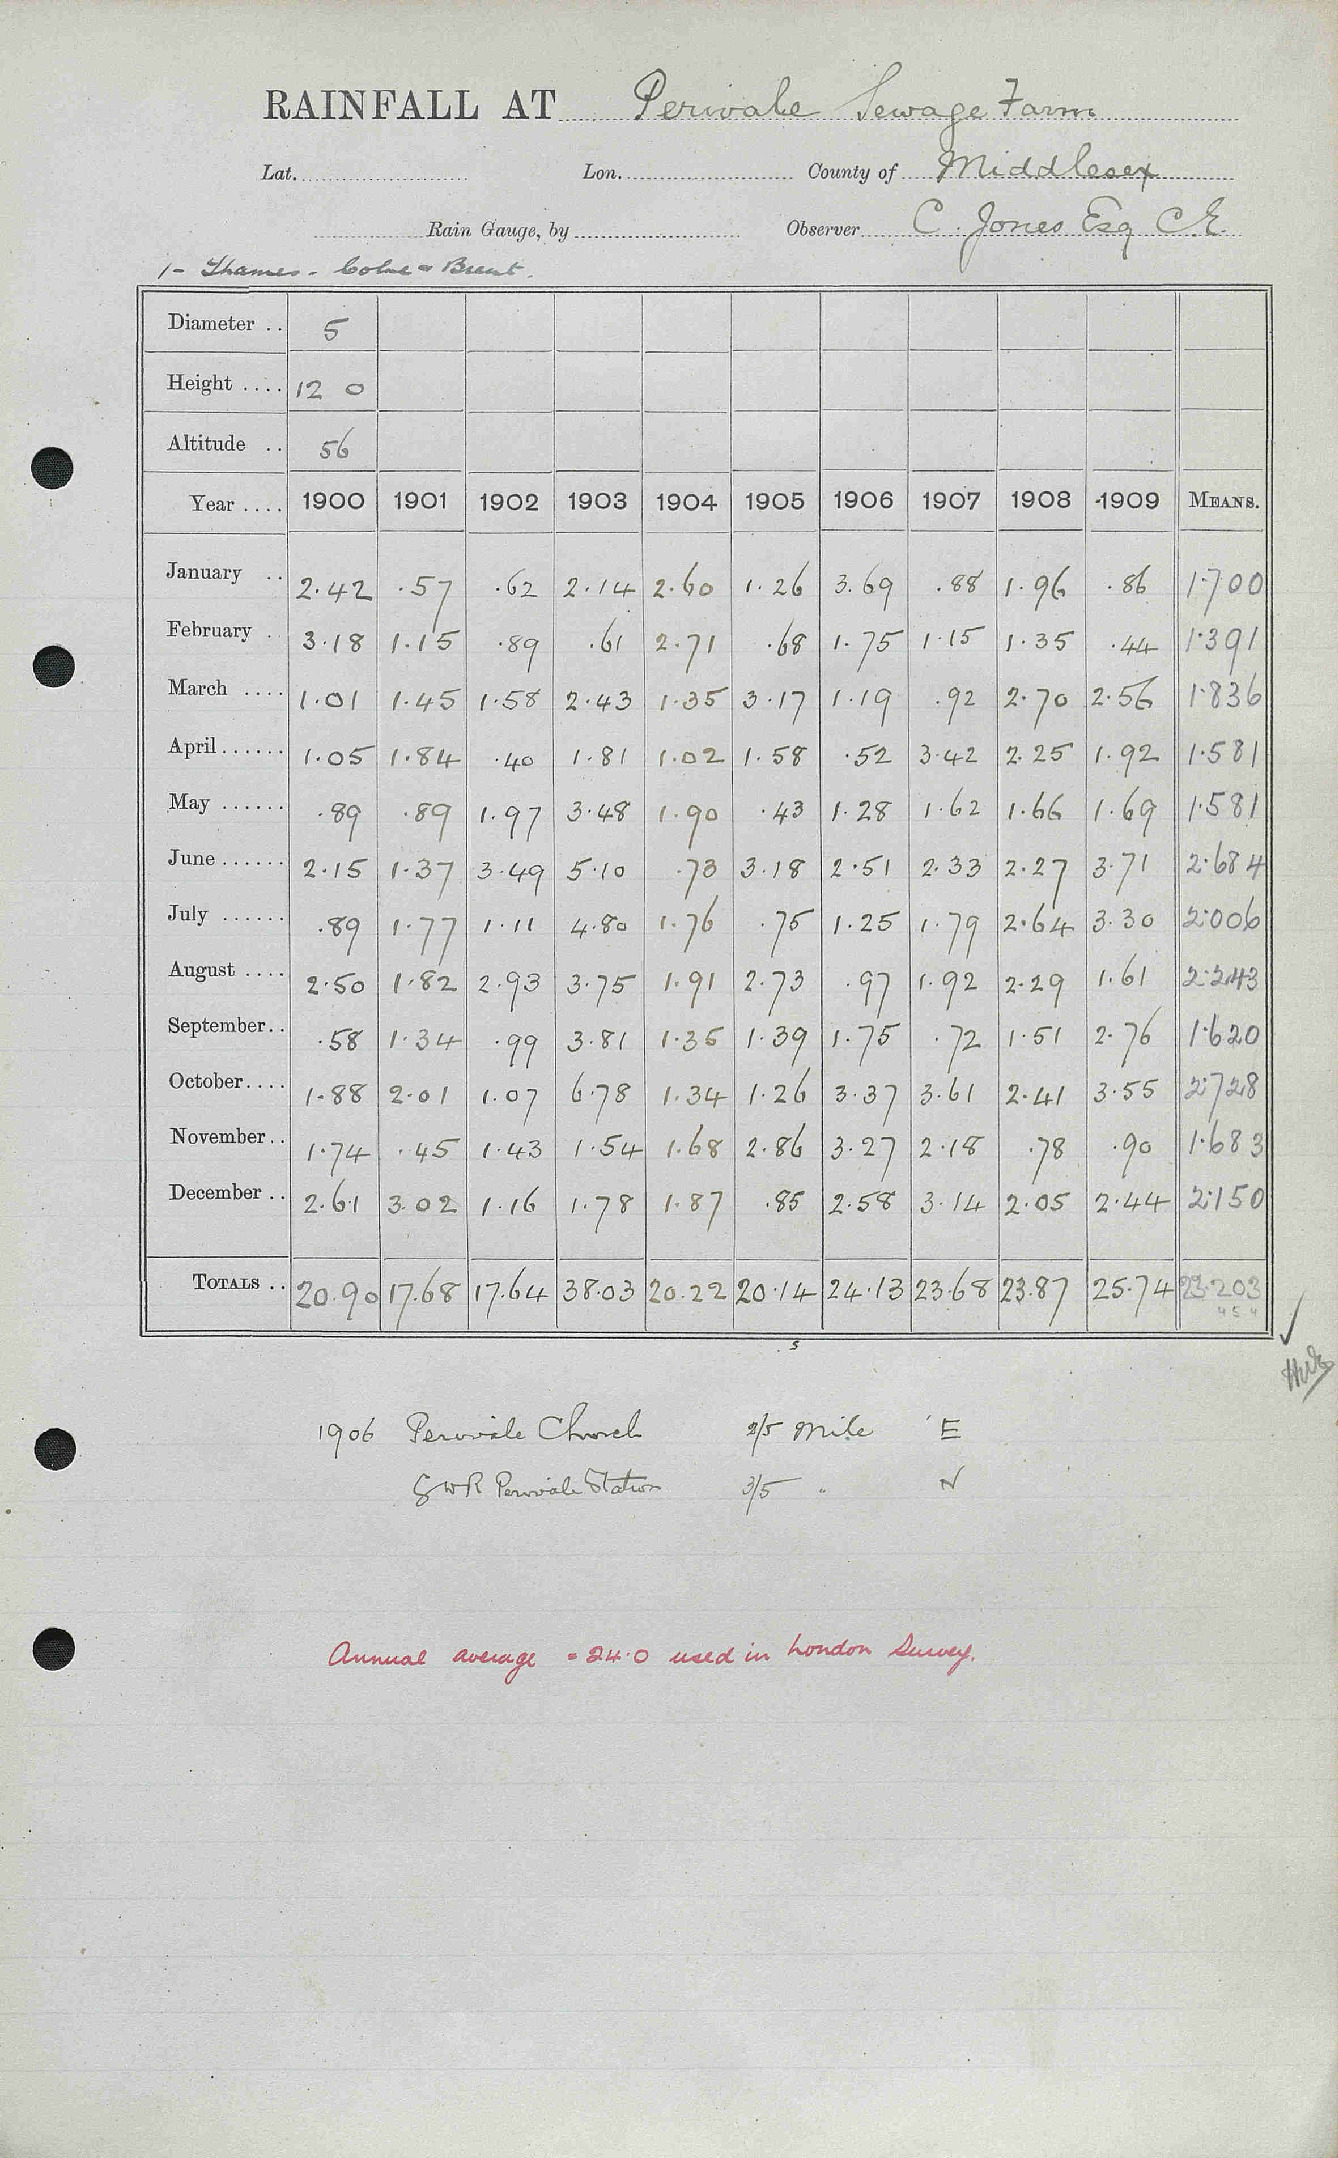 RAINFALL AT Perivale Sewage Farm
Lat. Lon. County of Middlesex
Rain Gauge, by Observer C. Jones Esq C.E.
1 - Thames - Colne & Brent.
Diameter .. 5
Height .... 12 0
Altitude .. 56
Year .... 1900 1901 1902 1903 1904 1905 1906 1907 1908 1909 MEANS.
January .. 2.42 .57 .62 2.14 2.60 1.26 3.69 .88 1.96 .86 1.700
February .. 3.18 1.15 .89 .61 2.71 .68 1.75 1.15 1.35 .44 1.391
March .... 1.01 1.45 1.58 2.43 1.35 3.17 1.19 .92 2.70 2.56 1.836
April ...... 1.05 1.84 .40 1.81 1.02 1.58 .52 3.42 2.25 1.92 1.581
May ...... .89 .89 1.97 3.48 1.90 .43 1.28 1.62 1.66 1.69 1.581
June ...... 2.15 1.37 3.49 5.10 .73 3.18 2.51 2.33 2.27 3.71 2.684
July ...... .89 1.77 1.11 4.80 1.76 .75 1.25 1.79 2.64 3.30 2.006
August .... 2.50 1.82 2.93 3.75 1.91 2.73 .97 1.92 2.29 1.61 2.243
September.. .58 1.34 .99 3.81 1.35 1.39 1.75 .72 1.51 2.76 1.620
October.... 1.88 2.01 1.07 6.78 1.34 1.26 3.37 3.61 2.41 3.55 2.728
November.. 1.74 .45 1.43 1.54 1.68 2.86 3.27 2.18 .78 .90 1.683
December .. 2.61 3.02 1.16 1.78 1.87 .85 2.58 3.14 2.05 2.44 2.150
TOTALS .. 20.90 17.68 17.64 38.03 20.22 20.14 24.13 23.68 23.87 25.74 23.203
5
1906 Perivale Church 2/5 Mile E
GWR Perivale Station 3/5 " N
Annual average = 24.0 used in London Survey.